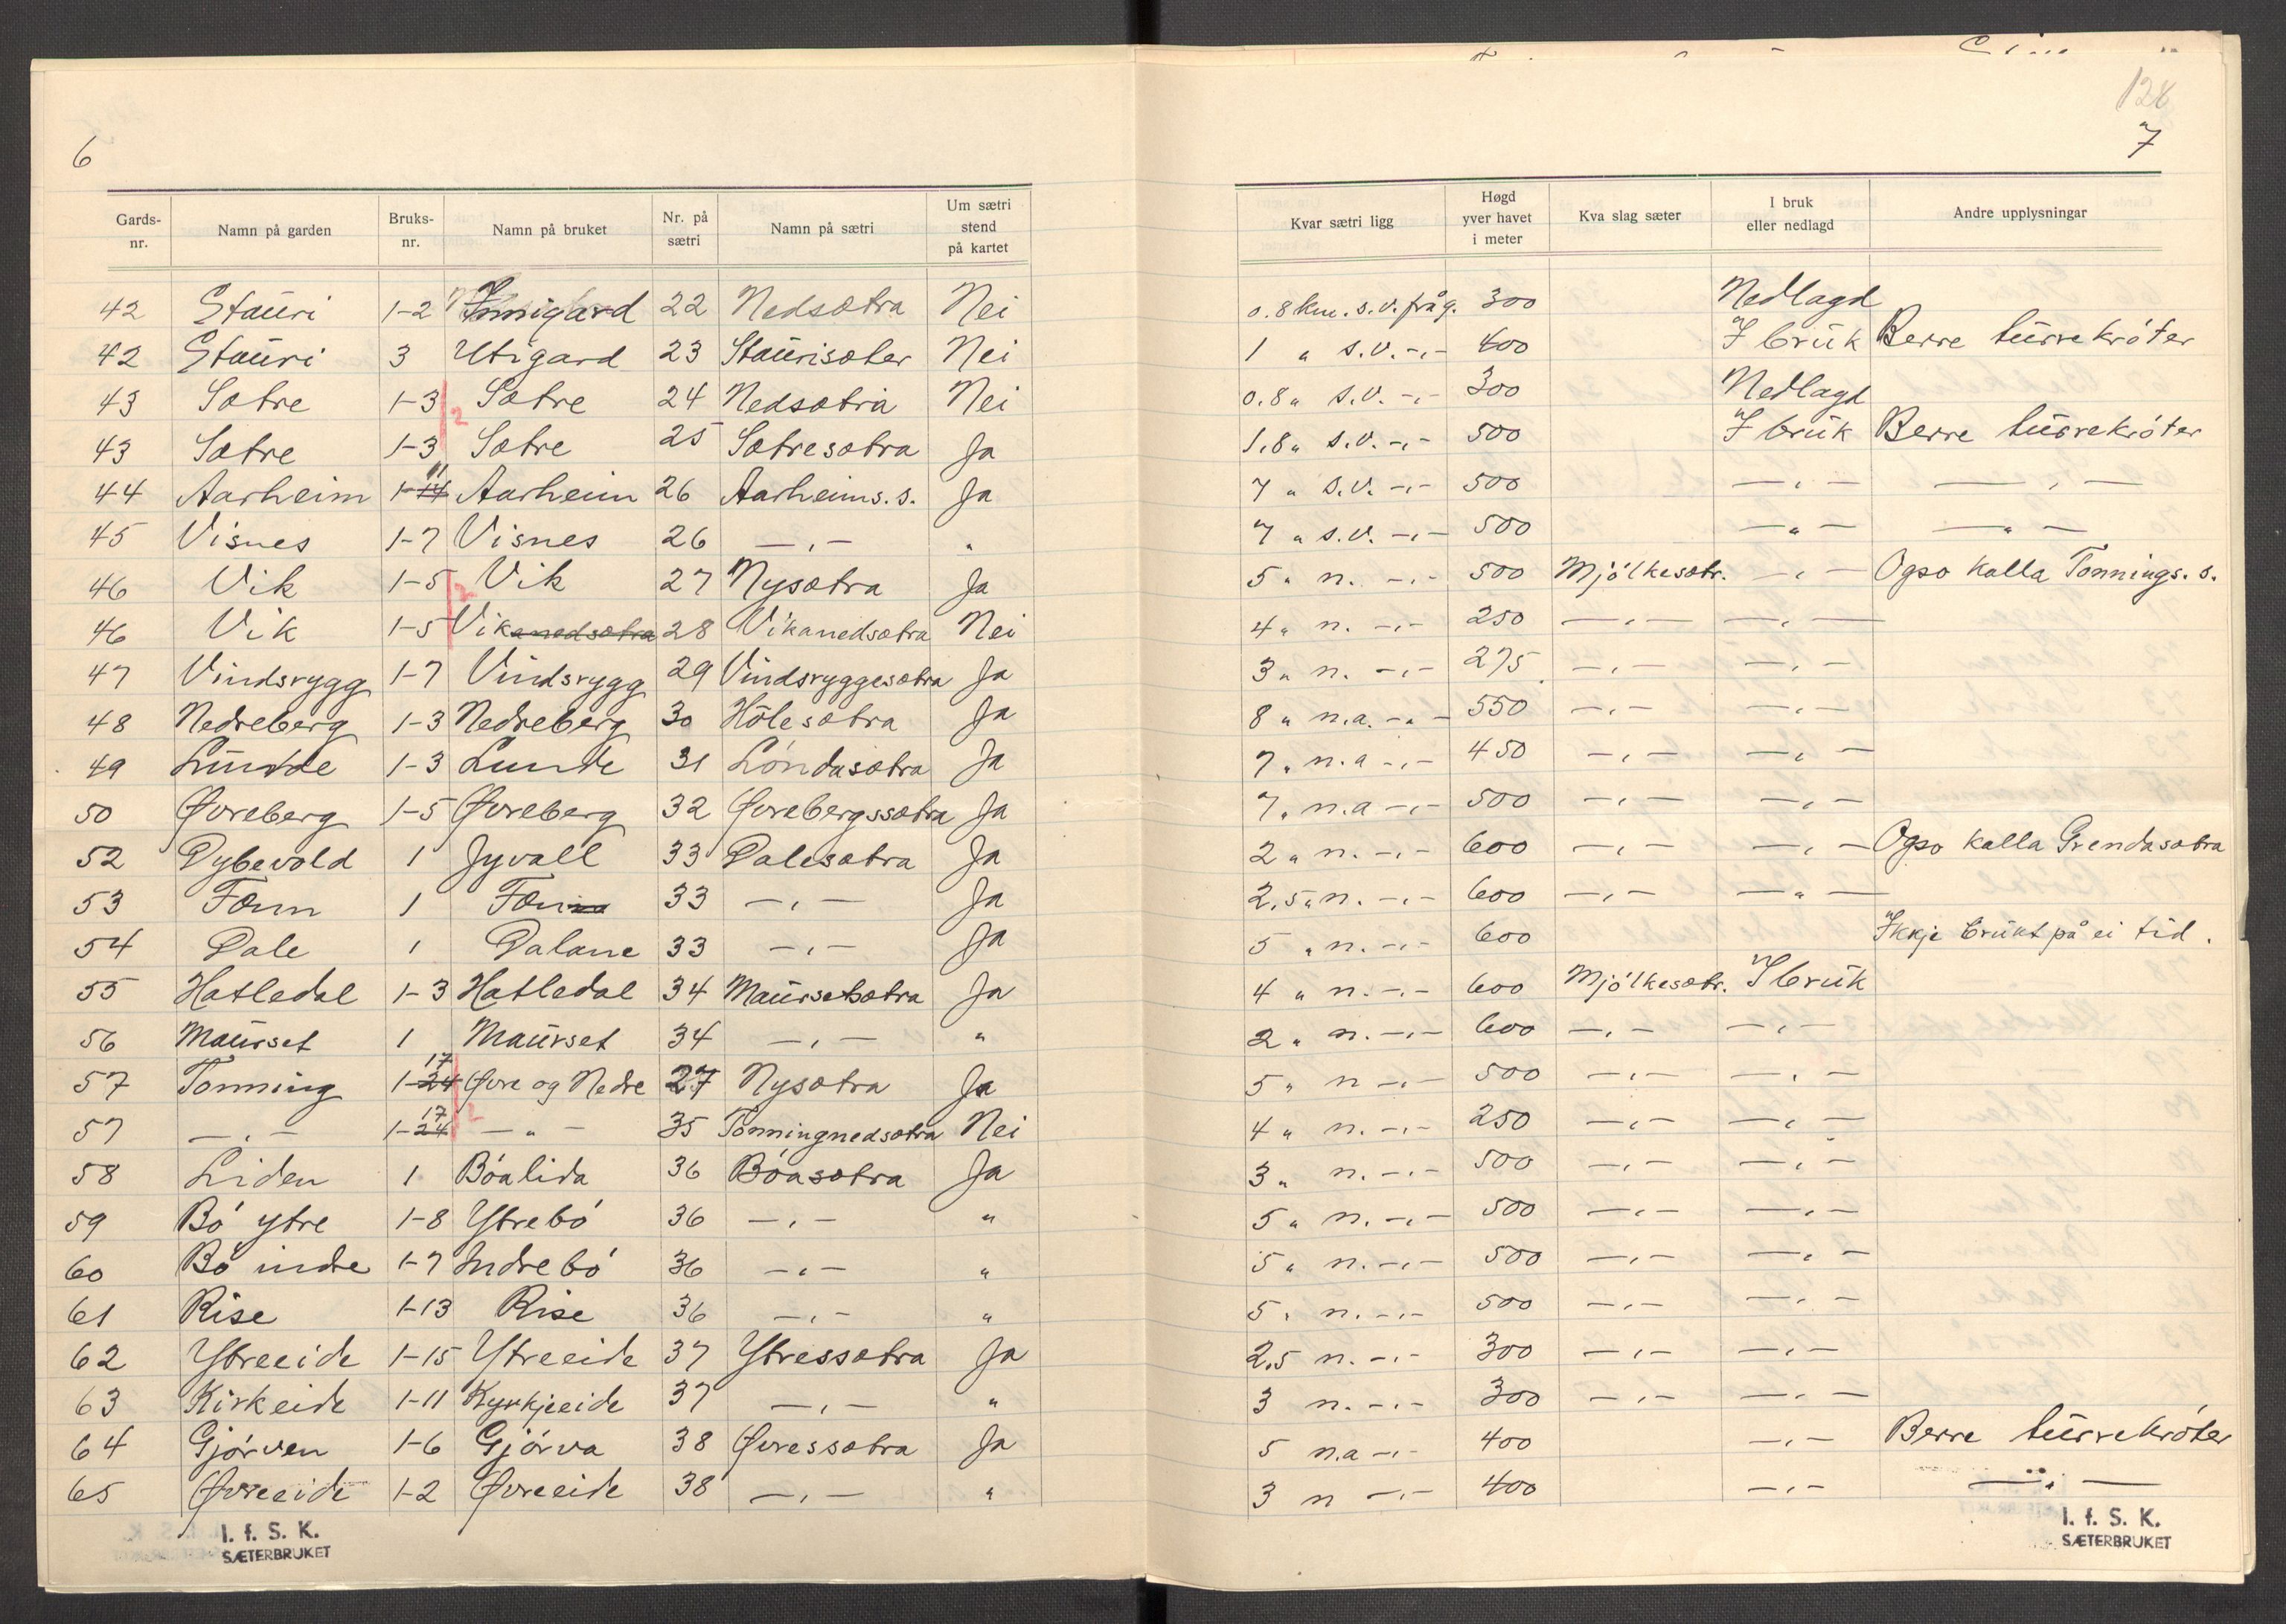 6
Gards-nr. | Namn på garden | Bruks-nr. | Namn på bruket | Nr. på sætri | Namn på sætri | Um sætri stend på kartet
42 Stauri 1-2 Innigard 22 Nedsætra Nei
42 Stauri 3 Utigard 23 Staurisæter Nei
43 Sætre 1-3 2 Sætre 24 Nedsætra Nei
43 Sætre 1-3 Sætre 25 Sætresætra Ja
44 Aarheim 1-14 11 Aarheim 26 Aarheims. s. Ja
45 Visnes 1-7 Visnes 26 —„— „
46 Vik 1-5 2 Vik 27 Nysætra Ja
46 Vik 1-5 Vikanedsætra 28 Vikanedsætra Nei
47 Vindsrygg 1-7 Vindsrygg 29 Vindsryggesætra Ja
48 Nedreberg 1-3 Nedreberg 30 Hólesætra Ja
49 Lunde 1-3 Lunde 31 Lóndasætra Ja
50 Øvreberg 1-5 Øvreberg 32 Øvrebergssætra Ja
52 Dybevold 1 Jyvall 33 Dalesætra Ja
53 Fonn 1 33 —„— Ja
54 Dale 1 Dalane 33 —„— Ja
55 Hatledal 1-3 Hatledal 34 Maursetsætra Ja
56 Maurset 1 Maurset 34 —„— „
57 Tonning 1-24 17 2 Øvre og Nedre 27 Nysætra Ja
57 —„— 1-24 17 —„— 35 Tonningnedsætra Nei
58 Liden 1 Bóalida 36 Bóasætra Ja
59 Bó ytre 1-8 Ytrebó 36 —„— „
60 Bó indre 1-7 Indrebó 36 —„— „
61 Rise 1-13 Rise 36 —„— „
62 Ytreeide 1-15 Ytreeide 37 Ytressætra Ja
63 Kirkeide 1-11 Kyrkjeeide 37 —„— „
64 Gjórven 1-6 Gjórva 38 Øvressætra Ja
65 Øvreeide 1-2 Øvreeide 38 —„— „
I. f. S. K.
SÆTERBRUKET
128
7
Kvar sætri ligg | Høgd yver havet i meter | Kva slag sæter | I bruk eller nedlagd | Andre upplysningar
0.8 km. s.v. frå g. 300 Nedlagd
1 „ s.v. -„- 400 I bruk Berre turrekróter
0.8 „ s.v. -„- 300 Nedlagd
1.8 „ s.v. -„- 500 I bruk Berre turrekróter
7 „ s.v. -„- 500 —„— —„—
7 „ s.v. -„- 500 —„— —„—
5 „ n. -„- 500 Mjólkesætr. —„— Ogso kalla Tonnings. s.
4 „ n. -„- 250 —„— —„—
3 „ n. -„- 275 —„— —„—
8 „ n.a. -„- 550 —„— —„—
7 „ n.a -„- 450 —„— —„—
7 „ n.a -„- 500 —„— —„—
2 „ n. -„- 600 —„— —„— Ogso kalla Grendasætra
2,5 „ n. -„- 600 —„— —„—
5 „ n. -„- 600 Ikkje brukt på ei tid.
4 „ n. -„- 600 Mjólkesætr. I bruk
2 „ n. -„- 600 —„— —„—
5 „ n -„- 500 —„— —„—
4 „ n. -„- 250 —„— —„—
3 „ n. -„- 500 —„— —„—
5 „ n. -„- 500 —„— —„—
5 „ n. -„- 500 —„— —„—
5 „ n. -„- 500 —„— —„—
2,5 n. -„- 300 —„— —„—
3 n. -„- 300 —„— —„—
5 n.a -„- 400 —„— Berre turrekróter
3 n -„- 400 —„— —„—
I. f. S. K.
SÆTERBRUKET